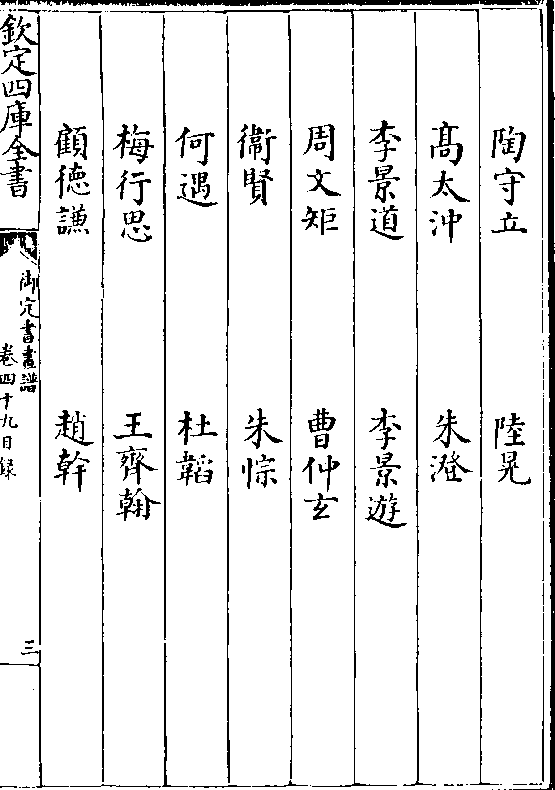 陶守立 陸晃
髙太沖 朱澄
李景道 李景遊
周文矩 曹仲玄
衞賢 朱悰
何遇 杜韜
梅行思 王齊翰
顧德謙 趙幹
欽定四庫全書 御定書畫譜 卷四十九目録 三